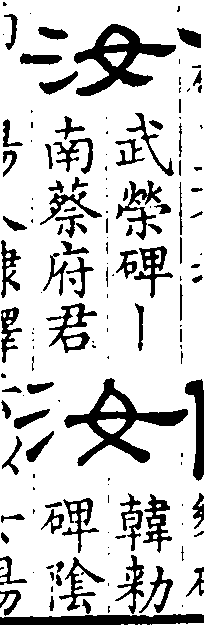 汝
武榮碑丨
南蔡府君
汝
韓勑
碑陰